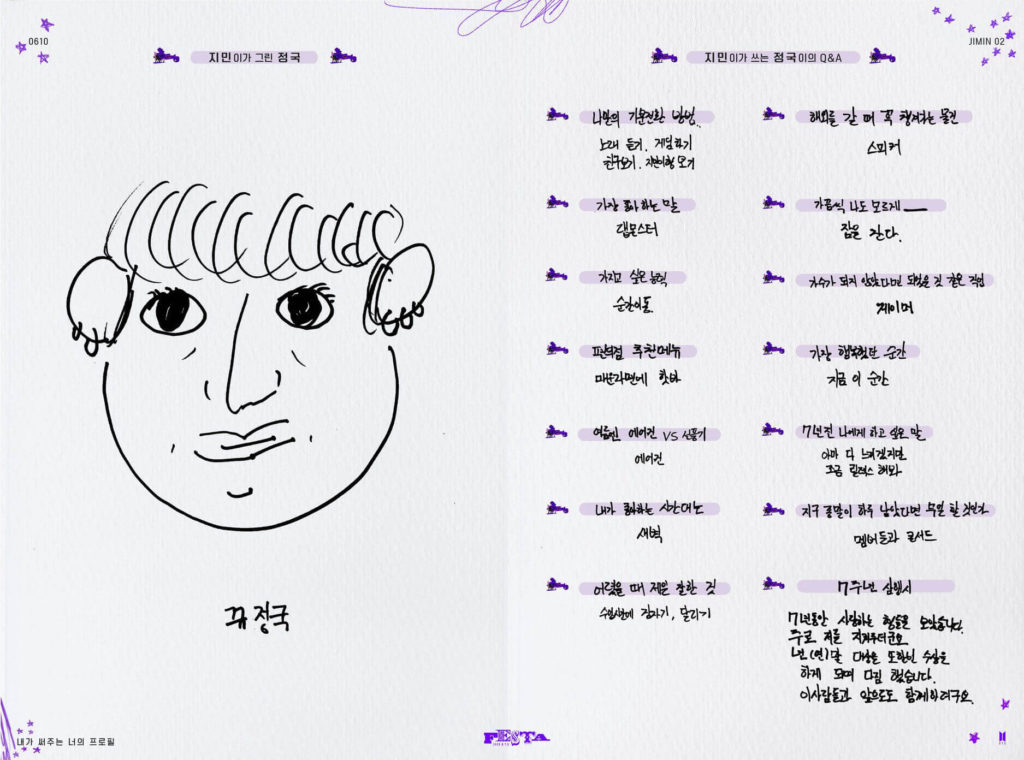 0610
지민이가 그린 정국
뀨 정국
내가 써주는 너의 프로필
JIMIN 02
지민이가 쓰는 정국이의 Q&A
나만의 기분전환 방법
노래 듣기. 게임하기
친구보기. 지민이형 보기
가장 좋아하는 말
랩몬스터
가지고 싶은 능력
순간이동
편의점 추천메뉴
매운라면에 핫바
여름엔 에어컨 VS 선풍기
에어컨
내가 좋아하는 시간대는
새벽
어렸을 때 제일 잘한 것
수업시간에 잠자기, 달리기
해외를 갈 때 꼭 챙겨가는 물건
스피커
가끔씩 나도 모르게
잠을 잔다.
가수가 되지 않았다면 되었을 것 같은 직업
게이머
가장 행복했던 순간
지금 이 순간
7년전 나에게 하고 싶은 말
아마 다 느끼겠지만
조금 릴렉스 해봐
지구 종말이 하루 남았다면 무얼 할 것인가
멤버들과 콘서트
7주년 삼행시
7년동안 사랑하는 형들은 모았습니다.
주로 저를 지켜주더군요
년(연)달 대상을 또한번 수상을
하게 되며 다짐 했습니다.
이사람들과 앞으로도 함께하려구요.
FESTA
BTS